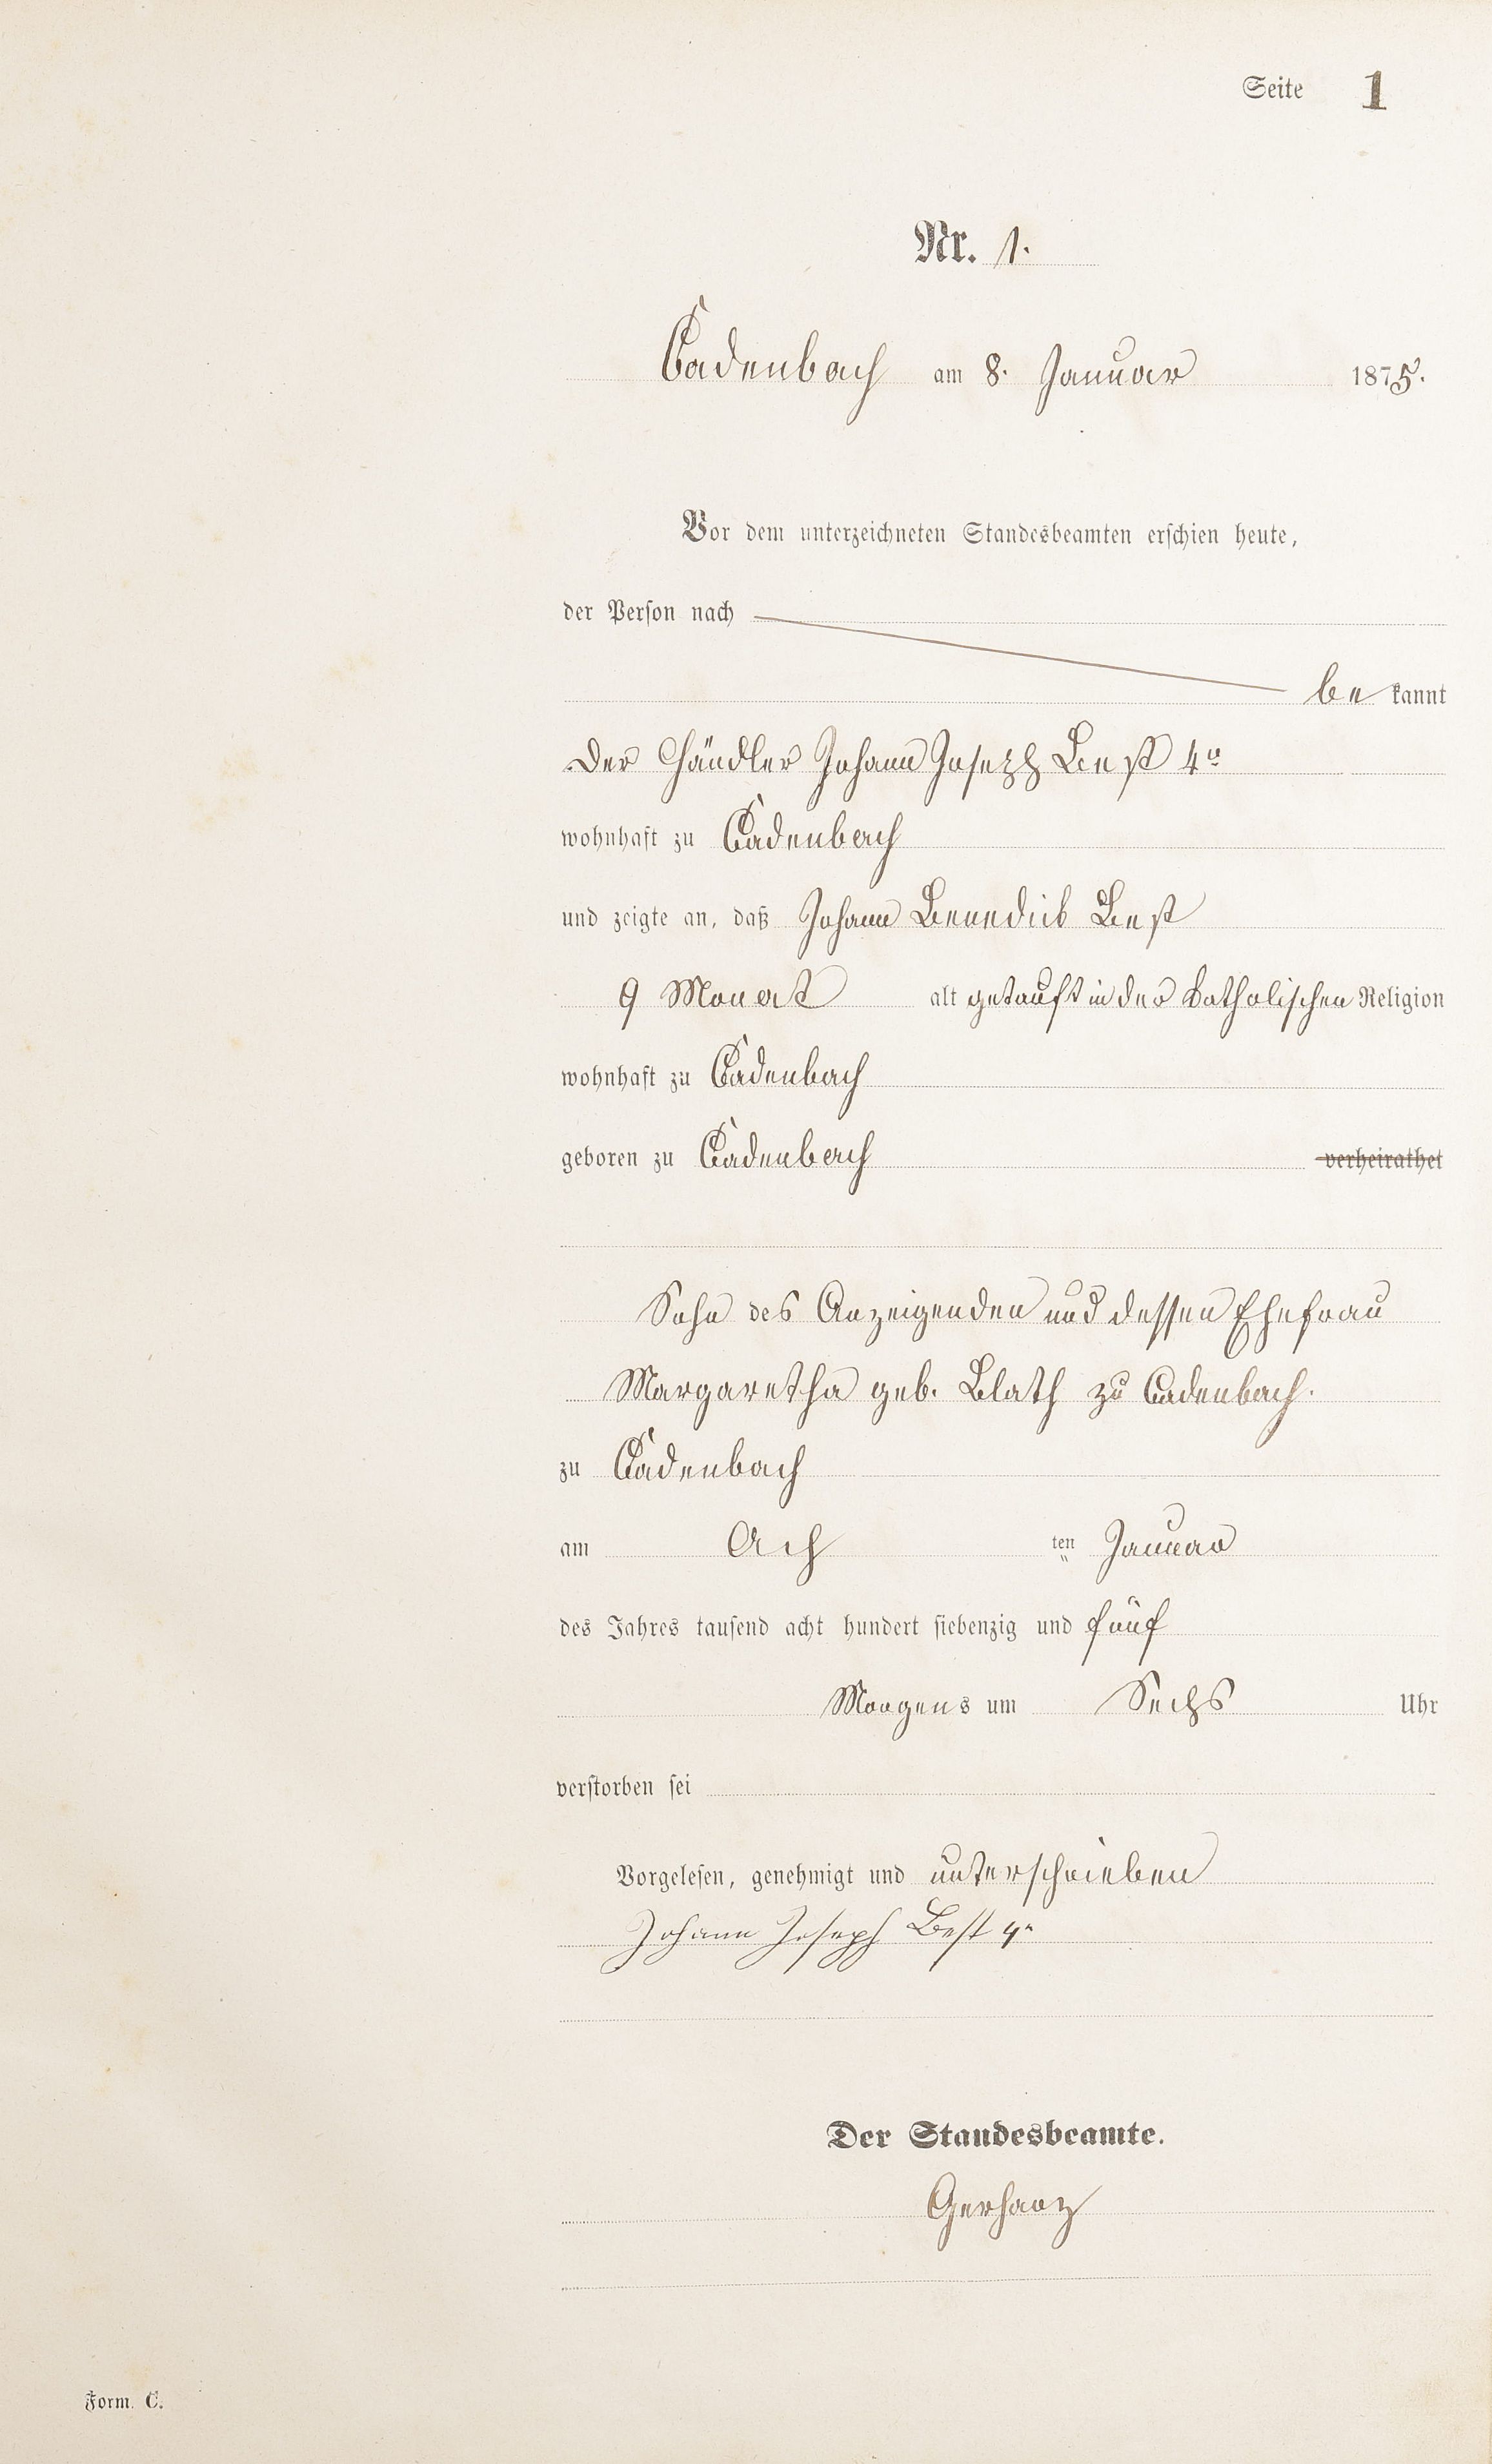 Seite 1
Nr. 1.
Cadenbach am 8. Januar 1875.
Vor dem unterzeichneten Standesbeamten erschien heute,
der Person nach
be kannt
der Händler Johann Joseph Best 4r
wohnhaft zu Cadenbach
und zeigte an, daß Johann Benedict Best
9 Monat alt getauft in der Katholischen Religion
wohnhaft zu Cadenbach
geboren zu Cadenbach verheirathet
Sohn des Anzeigenden und dessen Ehefrau
Margaretha geb. Blath zu Cadenbach.
zu Cadenbach
am Ach ten Januar
des Jahres tausend acht hundert siebenzig und fünf
Morgens um Sechs Uhr
verstorben sei
Vorgelesen, genehmigt und unterschrieben
Johann Joseph Best 4r
Der Standesbeamte.
Gerharz
Form. C.